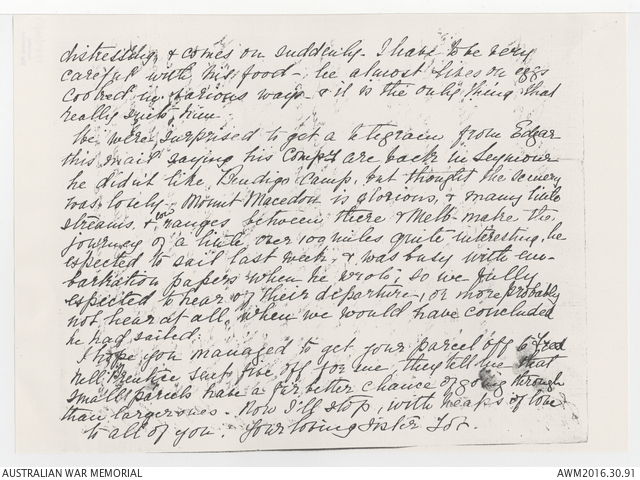 distressing, & comes on suddenly. I have to be very
careful with his food - he almost lives on eggs
cooked in various ways & it is the only thing that
really suits him.
We were surprised to get a telegram from Edgar
this mail saying his Compy are back in Seymour
he didn't like Bendigo Camp, but thought the scenery
was lovely - Mount Macedon is glorious, & many little
streams & low ranges between there & Melb- make the
journey of a little over 100 miles quite interesting, he
expected to sail last week, & was busy with em-
barkation papers when he wrote, so we fully
expected to hear of their departure, or more probably
not hear at all, when we would have concluded
he had sailed.
I hope you managed to get your parcel off to Fred
Nell Prentice says five off for me, they tell me that
small parcels have a far better chance of going through
than larger ones. Now I'll stop, with heaps of love
to all of you. Your loving Sister
AUSTRALIAN WAR MEMORIAL
AWM2016.30.91